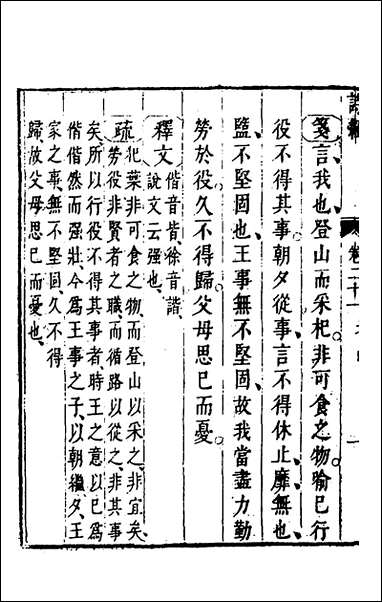 箋言我也登山而采杞非可食之物喻已行
役不得其事朝夕從事言不得休止靡無也
盬不堅固也王事無不堅固故我當盡力勤
勞於役久不得歸父母思已而憂
釋文偕音皆徐音諧
說文云强也
疏杞葉非可食之物而登山以采之非宜矣
勞役非賢者之職而循路以從之非其事
矣所以行役不得其事者時王之意以已爲
偕偕然而强壯今爲王事之子以朝繼夕王
家之事無不堅固久不得
歸故父母思已而憂也
卷二十一